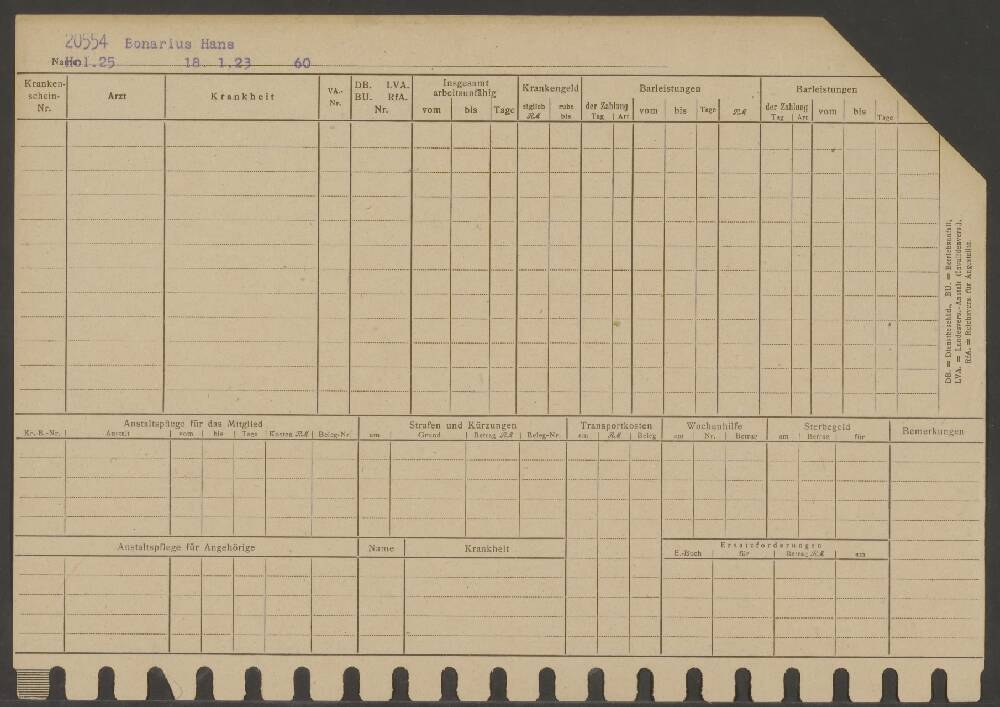 20554 Bonarius Hans
Name Hol.25 18. 1.23 60
Kranken-schein-Nr. Arzt Krankheit VA.-Nr. DB. LVA. BU. RfA. Nr. Insgesamt arbeitsunfähig Krankengeld Barleistungen Barleistungen
vom bis Tage täglich RM ruht bis der Zahlung Tag Art vom bis Tage RM der Zahlung Tag Art vom bis Tage
DB. = Dienstbeschäd., BU. = Betriebsunfall,
LVA. = Landesvers.-Anstalt (Invalidenvers.),
RfA. = Reichsvers. für Angestellte.
Anstaltspflege für das Mitglied Strafen und Kürzungen Transportkosten Wochenhilfe Sterbegeld Bemerkungen
Kr.-B.-Nr. Anstalt vom bis Tage Kosten RM Beleg-Nr. am Grund Betrag RM Beleg-Nr. am RM Beleg am Nr. Betrag am Betrag für
Anstaltspflege für Angehörige Name Krankheit Ersatzforderungen
E.-Buch für Betrag RM am